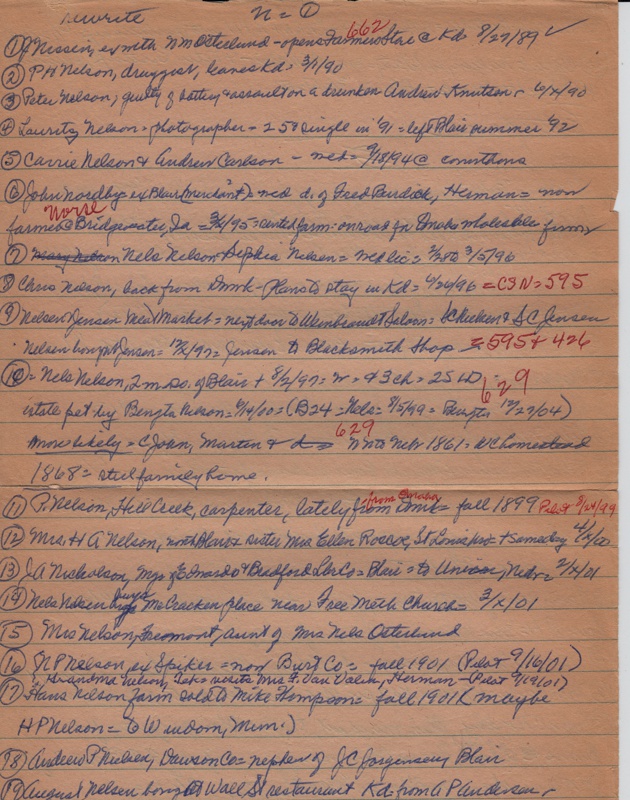 rewrite N = ①
662
① J Nissen, ex with NM Osterlund - opens Farmers Store @ Kd 8/27/89 ✓
② P H Nelson, druggist, leaves Kd = 3/1/90
③ Peter Nelson, guilty of battery & assault on a drunken Andrew Knutson - 6/x/90
④ Lauritz Nelson = photographer - 250 single in '91 = left Blair summer '92
⑤ Carrie Nelson & Andrew Carlson - wed = 9/18/94 @
⑥ John Nordby ex Blair (merchant) = wed d. of Fred Burdick, Herman = now
Norse
farmer @ Bridgewater, Ia = 3/x/95 = rented farm = on road for Omaha wholesale firm
⑦ Nels Nelson Sophia Nelsen = wed lic = 2/28 to 3/5/96
⑧ Chris Nelson, back from Dmrk - Plans to stay in Kd = 4/20/96 = CSN = 595
⑨ Nelsen & Jensen Meat Market = next door to Saloon = & S C Jensen
Nelsen bought Jensen = 12/x/97 = Jensen to Blacksmith Shop = 595 + 426
⑩ = Nels Nelson, 2 m. so. of Blair + 8/2/97 = w = & 3 ch = 25 629
estate pet by Bengta Nelson = 9/14/00 = (B24 = Nels = 8/5/99 = Bengta 12/27/04)
629
More likely = C John, Martin & d to Nebr 1861 = WC homestead
1868 = still family home.
from Omaha
⑪ P. Nelson, Hill Creek, carpenter, lately from = fall 1899 Pilot 8/24/99
⑫ Mrs. H A Nelson, north Blair & sister Mrs Ellen Roscoe, St Louis = + same day 4/x/00
⑬ J A Nicholson, Mgr of Edwards & Bradford Lbr Co = Blair = to Union, Nebr = 2/x/01
⑭ Nels Nelsen buys McCracken place near Free Meth Church = 3/x/01
⑮ Mrs Nelson, Fremont, aunt of Mrs Nels Osterlund
⑯ N P Nelson, ex Spiker = now Burt Co = fall 1901 (Pilot 9/16/01)
Grandma Nelson, Tek = visits Mrs F. Van Valin, Herman - Pilot 9/19/01)
⑰ Hans Nelson farm sold to Mike Thompson = fall 1901 (maybe
H P Nelson = to Windom, Minn.)
⑱ Andrew P Nielsen, Dawson Co = nephew of J C Jorgensen, Blair
⑲ August Nelsen bought Wall St restaurant Kd from A P Andersen -